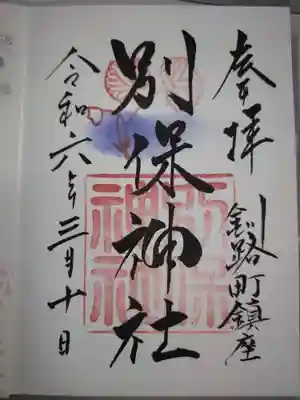 奉拝
釧路町鎮座
別保神社
令和六年三月十日